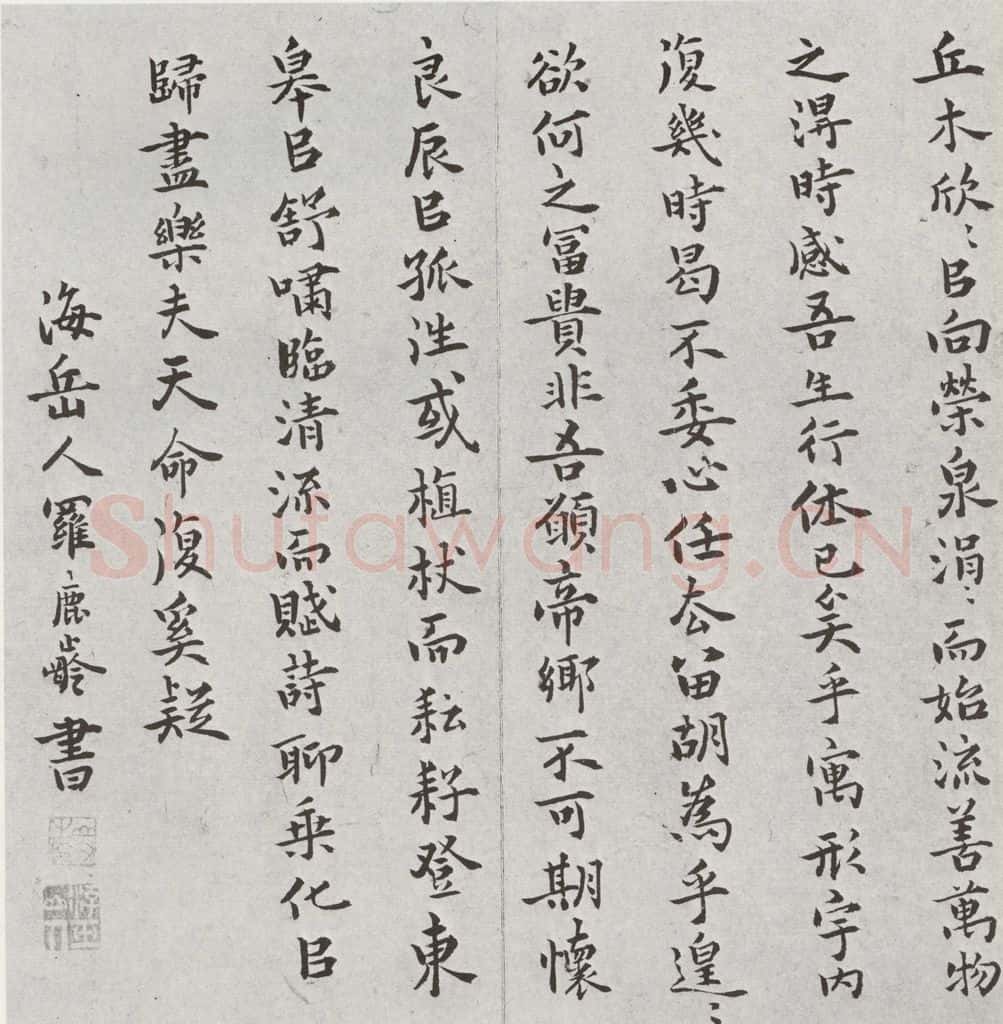 丘木欣〻㠯向榮泉涓〻而始流善萬物
之淂時感吾生行休已矣乎寓形宇内
復幾時曷不委心任去留胡為乎遑〻
欲何之冨貴非吾願帝鄉不可期懷
良辰㠯孤往或植杖而耘耔登東
皋㠯舒嘯臨清流而賦詩聊乗化㠯
歸盡樂夫天命復奚疑
海岳人羅鹿齡書
Shufawang.CN